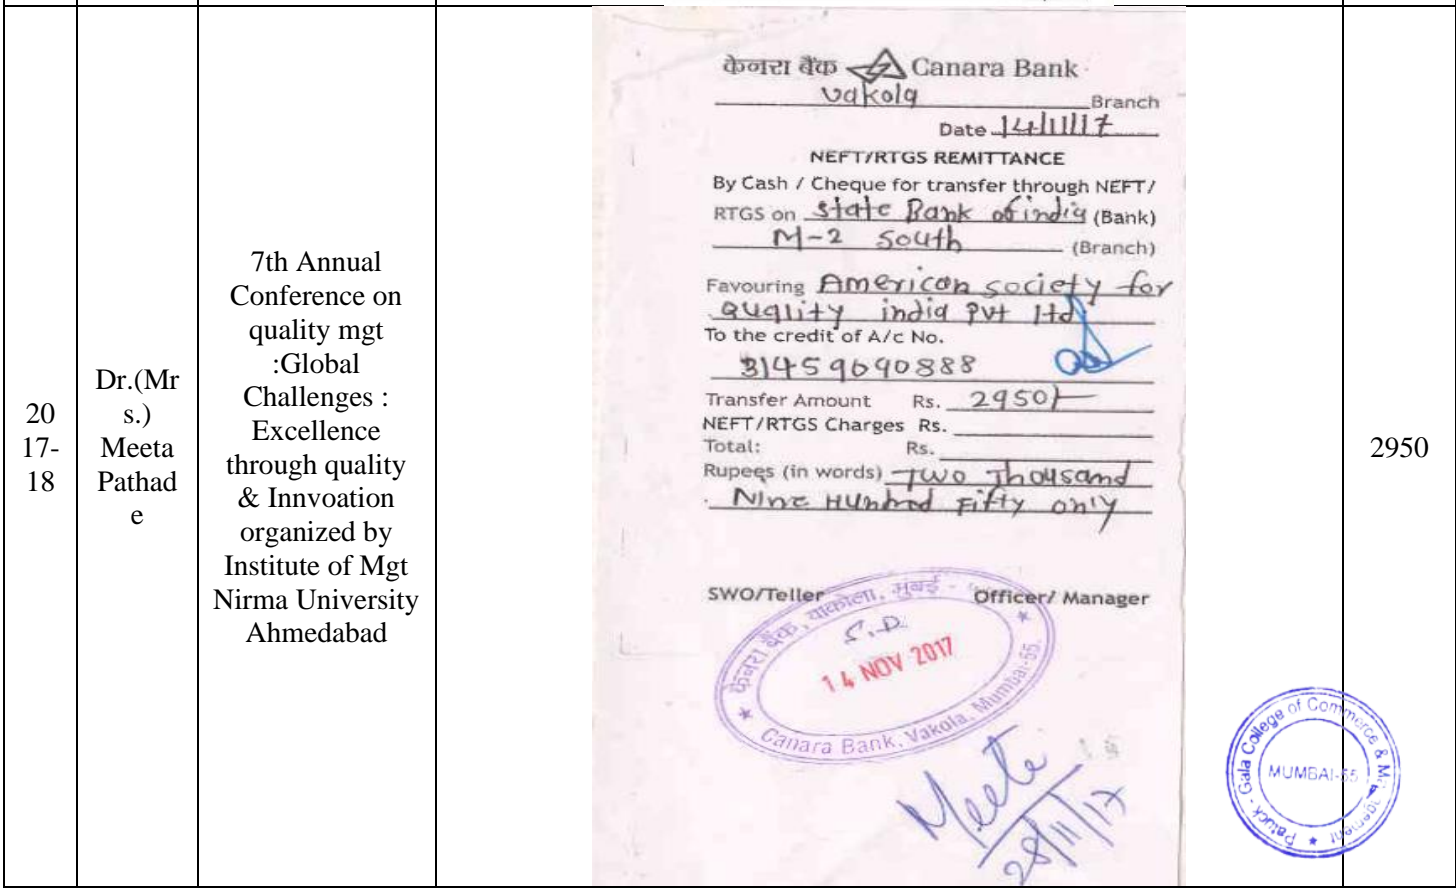 20
17-
18
Dr.(Mr
s.)
Meeta
Pathad
e
7th Annual
Conference on
quality mgt
:Global
Challenges :
Excellence
through quality
& Innvoation
organized by
Institute of Mgt
Nirma University
Ahmedabad
केनरा बैंक Canara Bank
Vakola Branch
Date 14/11/17
NEFT/RTGS REMITTANCE
By Cash / Cheque for transfer through NEFT/
RTGS on State Bank of india (Bank)
M-2 South (Branch)
Favouring American society for
quality india Pvt ltd
To the credit of A/c No.
31459690888
Transfer Amount Rs. 2950/-
NEFT/RTGS Charges Rs.
Total: Rs.
Rupees (in words) Two Thousand
Nine Hundred Fifty only
SWO/Teller Officer/ Manager
केनरा बैंक, वाकोला, मुंबई -
S.D.
14 NOV 2017
Canara Bank, Vakola, Mumbai-55.
Meeta
28/11/17
2950
Patuck - Gala College of Commerce & Management
MUMBAI-55